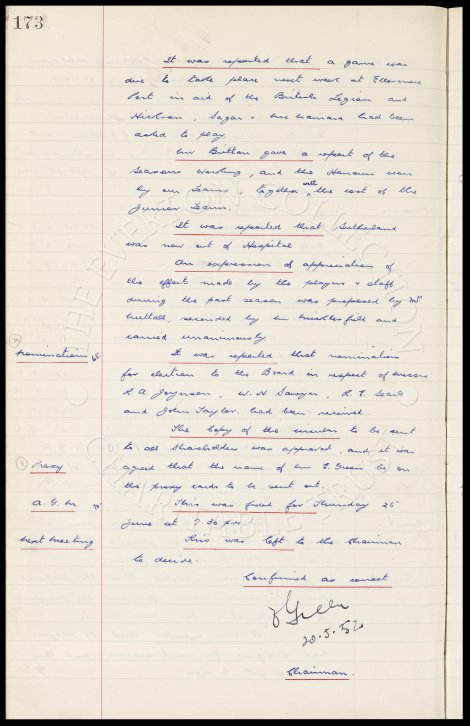 173
It was reported that a game was
due to take place next week at Ellesmere
Port in aid of the British Legion and
Hickson, Sagar & McNamara had been
asked to play.
Mr Britton gave a report of the
Seasons working, and the Honours won
by our Teams, together with the cost of the
Junior Teams.
It was reported that Sutherland
was now out of Hospital
An expression of appreciation of
the effort made by the players & staff
during the past season was proposed by Mr
Nuttall, seconded by Mr Micklesfield and
carried unanimously.
Nominations
It was reported that nominations
for election to the Board in respect of Messrs
R. A. Joynson, W. H. Sawyer, R. E. Searle
and John Taylor had been received.
The Copy of the circular to be sent
to all Shareholders was approved, and it was
Proxy
agreed that the name of Mr E Green be on
the proxy cards to be sent out.
A. G. M
This was fixed for Thursday 25
June at 7.30 pm
Next Meeting
This was left to the Chairman
to decide.
Confirmed as correct
Green
20.5.52
Chairman.
THE EVERTON COLLECTION
CHARITABLE TRUST